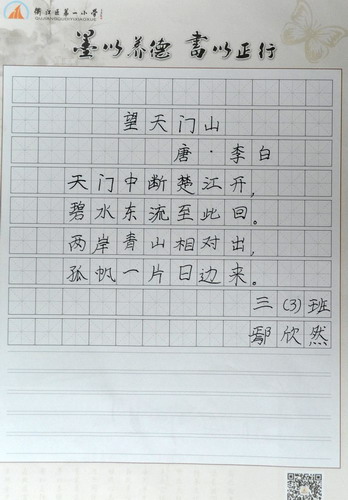 衢江区第一小学
墨以养德 書以正行
望天门山
唐·李白
天门中断楚江开，
碧水东流至此回。
两岸青山相对出，
孤帆一片日边来。
三(3)班
鄢欣然